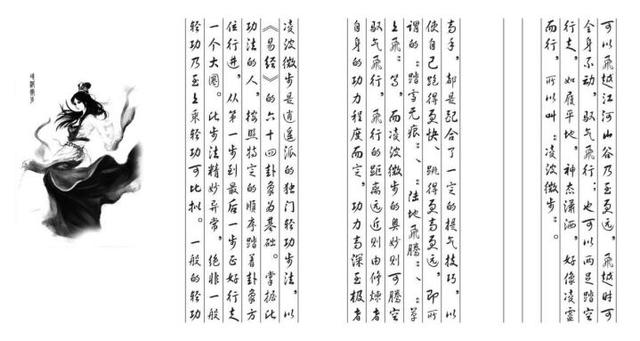 凌波微步是逍遥派的独门轻功步法，以
《易经》的六十四卦象为基础。掌握此
功法的人，按照特定的顺序踏着卦象方
位行进，从第一步到最后一步正好行走
一个大圈。此步法精妙异常，绝非一般
轻功乃至上乘轻功可比拟。一般的轻功
高手，都是配合了一定的提气技巧，以
使自己跑得更快、跳得更高更远，即所
谓的“踏雪无痕”、“陆地飞腾”、“草
上飞”等，而凌波微步的奥妙则可腾空
驭气飞行，飞行的距离远近则由修炼者
自身的功力程度而定，功力高深至极者
可以飞越江河山谷乃至更远，飞越时可
全身不动，驭气飞行；也可以两足踏空
行走，如履平地，神态潇洒，好像凌虚
而行，所以叫“凌波微步”。